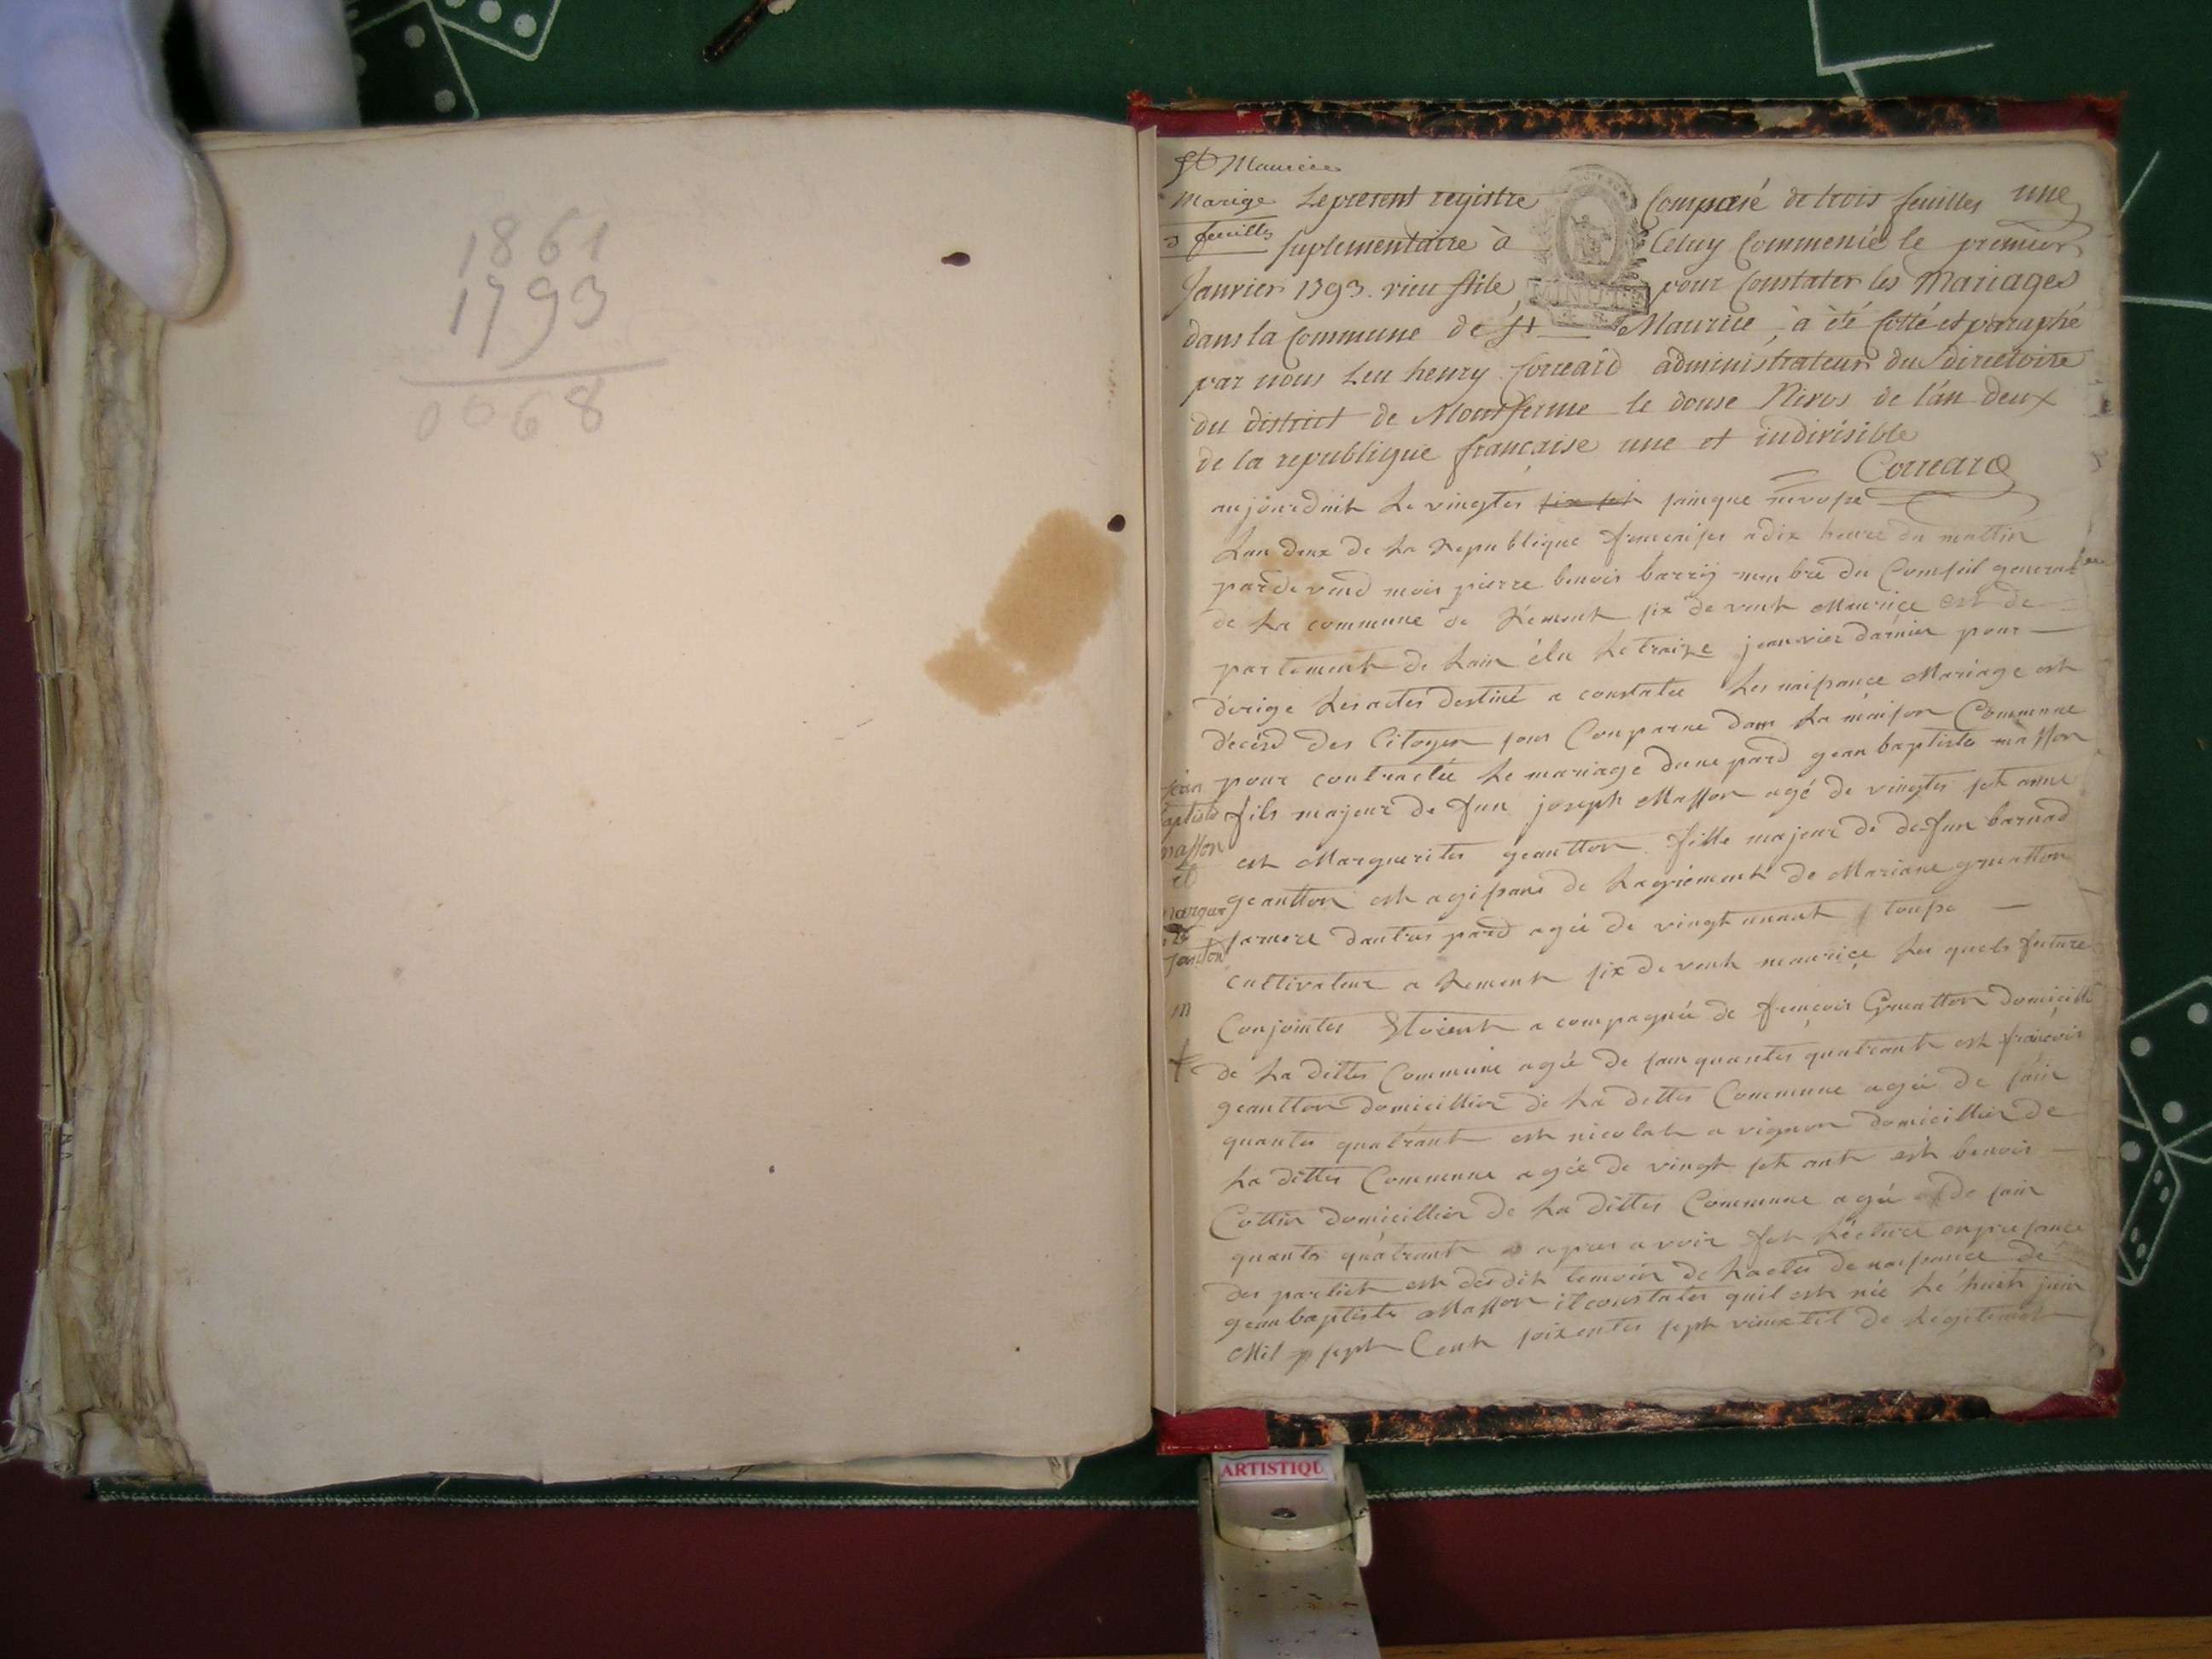 1861
1793
0068
St Maurice
Mariage Le present registre Composé de trois feuilles une
3 feuilles suplementaire à Celuy Commencé le premier
Janvier 1793. vieu stile, pour Constater les Mariages
MINUTE
dans la Commune de St Maurice, à été Cotté et paraphé
par nous Leu henry Correard administrateur du Directoire
du district de Montferme le douse Nivos de l'an deux
de la republique française une et indivisible
Correard
aujourduit Le vingtes sainque nivose
Lan deux de La Republique francaises a dix heure du mattin
pardevend mois pierre benois barrij membre du Conseil general
de La commune de Remont six devent Maurice est de
partement de Lain élu Le traize jeanvier darnier pour
dirige Les actes destiné a constatee Les naissance Mariage est
décésd des Citoyen sons Comparue dans La maison Commune
jean pour contractée Le mariage dune pard gean baptiste masson
baptiste fils majeur de funs joseph Masson agé de vingtes set anne
masson est Marguerites geantton fille majeur de defun barnad
et geantton est agissans de Lagrément de Mariane gruatton
margue samere dautres pard agée de vingt unant
rite
Jantton cultivateur a Remont six devent meaurice Les quels future
m Conjointes Etoient a compagnié de francois Gruatton domicillé
f de La dittes Commune agée de sain quantes quatrant est francois
geantton domicillier de La dittes Commune agée de sain
quantes quatrant est nicolat a vignon domicillier de
La dittes Commune agée de vingt set ant est benois
Cottin domicillier de La dittes Commune agée de sain
quantes quatrant apres avoir fet Léctuce enpresance
des partiet est desdit temoin de Lactes de naissance de
gean baptiste Masson il constates quil est née Le huit juin
Mil sept Cent soixentes sept de Légitimat
ARTISTIQU